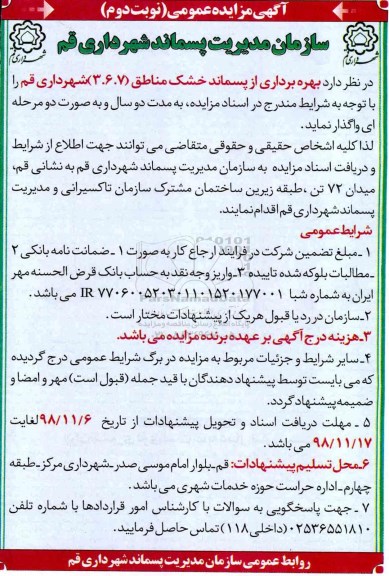 آگهی مزایده عمومی (نوبت دوم)
سازمان مدیریت پسماند شهرداری قم
در نظر دارد بهره برداری از پسماند خشک مناطق (۳.۶.۷) شهرداری قم را
با توجه به شرایط مندرج در اسناد مزایده، به مدت دو سال و به صورت دو مرحله
ای واگذار نماید.
لذا کلیه اشخاص حقیقی و حقوقی متقاضی می توانند جهت اطلاع از شرایط
و دریافت اسناد مزایده به سازمان مدیریت پسماند شهرداری قم به نشانی قم،
میدان ۷۲ تن ،طبقه زیرین ساختمان مشترک سازمان تاکسیرانی و مدیریت
پسماند شهرداری قم اقدام نمایند.
شرایط عمومی
۱ - مبلغ تضمین شرکت در فرایند ارجاع کار به صورت ۱ - ضمانت نامه بانکی ۲
-مطالبات بلوکه شده تاییده ۳-واریز وجه نقد به حساب بانک قرض الحسنه مهر
ایران به شماره شبا IR ۷۷۰۶۰۰۵۲۰۳۰۱۱۰۱۵۲۰۱۷۷۰۰۱ می باشد.
۲-سازمان در رد یا قبول هریک از پیشنهادات مختار است.
۳-هزینه درج آگهی بر عهده برنده مزایده می باشد.
۴-سایر شرایط و جزئیات مربوط به مزایده در برگ شرایط عمومی درج گردیده
که می بایست توسط پیشنهاد دهندگان با قید جمله (قبول است) مهر و امضا و
ضمیمه پیشنهاد گردد.
۵ - مهلت دریافت اسناد و تحویل پیشنهادات از تاریخ ۹۸/۱۱/۶ لغایت
۹۸/۱۱/۱۷ می باشد.
۶-محل تسلیم پیشنهادات: قم-بلوار امام موسی صدر-شهرداری مرکز-طبقه
چهارم-اداره حراست حوزه خدمات شهری می باشد.
۷ - جهت پاسخگویی به سوالات با کارشناس امور قراردادها با شماره تلفن
۰۲۵۳۶۵۵۱۸۱۰(داخلی ۱۱۸) تماس حاصل فرمایید.
روابط عمومی سازمان مدیریت پسماند شهرداری قم